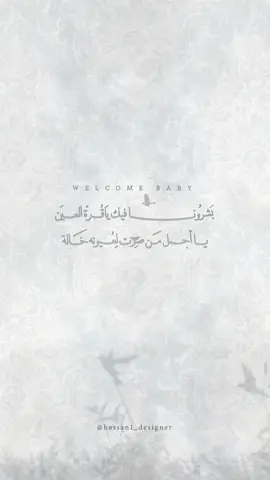 WELCOME BABY
بَشرُونـــا فيك ياقُـرة العـين
يـا أجـمل مَـن صِرت لِعُيونه خَـالة
@hassan1_designer